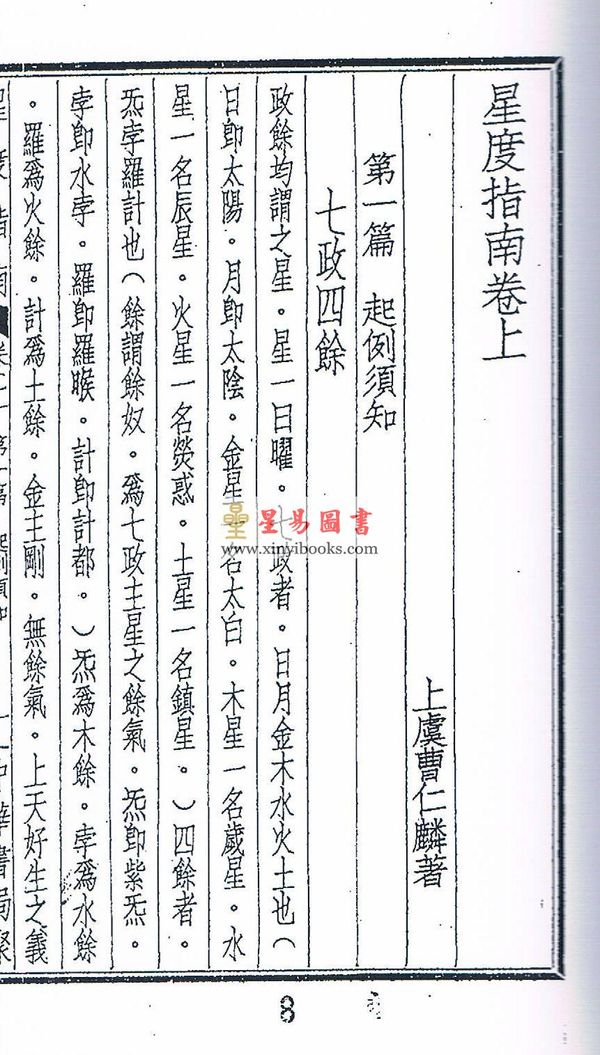 星度指南卷上
上虞曹仁麟著
第一篇　起例須知
七政四餘
政餘均謂之星。星一曰曜。七政者。日月金木水火土也（
日卽太陽。月卽太陰。金星一名太白。木星一名歲星。水
星一名辰星。火星一名熒惑。土星一名鎮星。）四餘者。
炁孛羅計也（餘謂餘奴。爲七政主星之餘氣。炁卽紫炁。
孛卽水孛。羅卽羅㬋。計卽計都。）炁爲木餘。孛爲水餘
。羅爲火餘。計爲土餘。金主剛。無餘氣。上天好生之義
星易圖書
www.xinyibooks.com
8